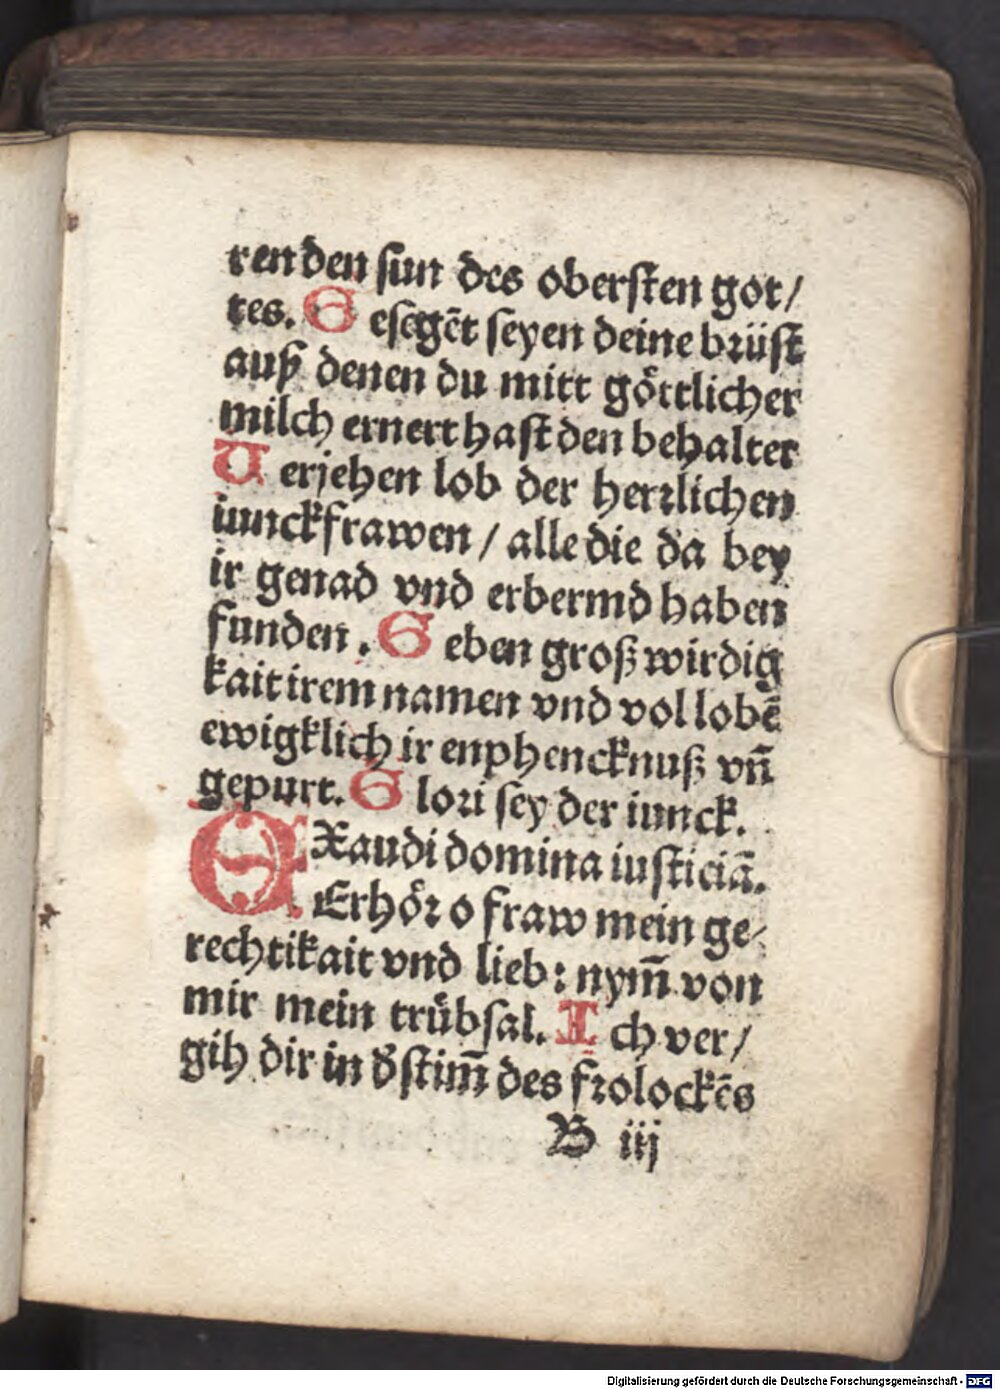 ren den sun des obersten got/
tes. Gesegēt seyen deine brüst
auß denen du mitt göttlicher
milch ernert hast den behalter
Verjehen lob der herrlichen
iunckfrawen / alle die da bey
ir genad vnd erbermd haben
funden. Geben groß wirdig
kait irem namen vnd vol lobē
ewigklich ir enphencknuß vn̄
gepurt. Glori sey der iunck.
EXaudi domina iusticiā.
Erhör o fraw mein ge/
rechtikait vnd lieb: nym̄ von
mir mein trübsal. Ich ver/
gih dir in d̾ stim̄ des frolockēs
B iij
Digitalisierung gefördert durch die Deutsche Forschungsgemeinschaft - DFG